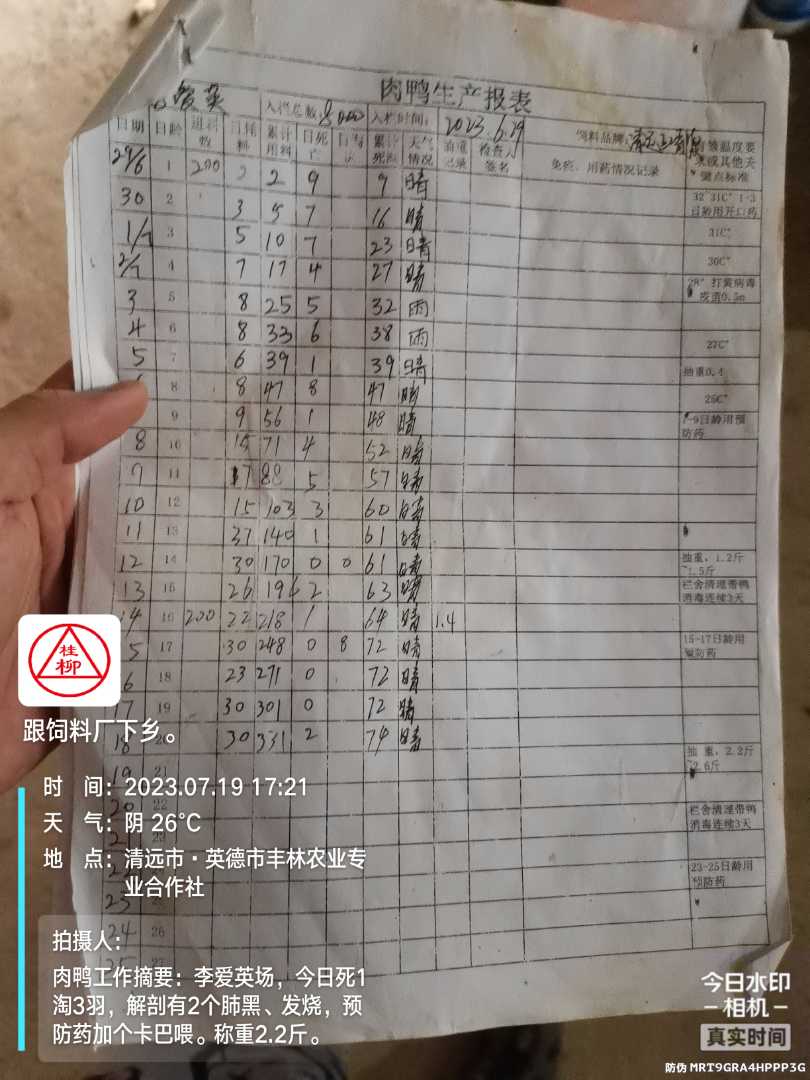 肉鸭生产报表
爱英 入栏总数: 8000 入栏时间: 2023.6.29 饲料品牌:
日期 日龄 进料数 日耗料 累计用料 日死亡 累计死淘 天气情况 抽重记录 检查人签名 免疫、用药情况记录
29/6 1 200 2 2 9 9 晴
30 2 3 5 7 16 晴 32°31C° 1-3日龄用开口药
1/7 3 5 10 7 23 晴 31C°
2/7 4 7 17 4 27 晴 30C°
3 5 8 25 5 32 雨 28° 打黄病毒疫苗0.5m
4 6 8 33 6 38 雨 27C°
5 7 6 39 1 39 晴 抽重0.4
8 8 47 8 47 晴 25C°
9 9 56 1 48 晴 7-9日龄用预防药
8 10 15 71 4 52 晴
11 17 88 5 57 晴
10 12 15 103 3 60 晴
11 13 37 140 1 61 晴
12 14 30 170 0 0 61 晴 抽重,1.2斤~1.5斤
13 15 26 196 2 63 晴 栏舍清理带鸭消毒连续3天
14 16 200 22 218 1 64 晴 1.4
5 17 30 248 0 8 72 晴 15-17日龄用预防药
6 18 23 271 0 72 晴
17 19 30 301 0 72 晴
18 20 30 331 2 74 晴 抽重,2.2斤~2.6斤
19 21
20 22 栏舍清理带鸭消毒连续3天
23-25日龄用预防药
23
24 26
桂柳
跟饲料厂下乡。
时 间:2023.07.19 17:21
天 气:阴 26℃
地 点:清远市·英德市丰林农业专
业合作社
拍摄人:
肉鸭工作摘要:李爱英场,今日死1
淘3羽,解剖有2个肺黑、发烧,预
防药加个卡巴喂。称重2.2斤。
今日水印
相机
真实时间
防伪 MRT9GRA4HPPP3G